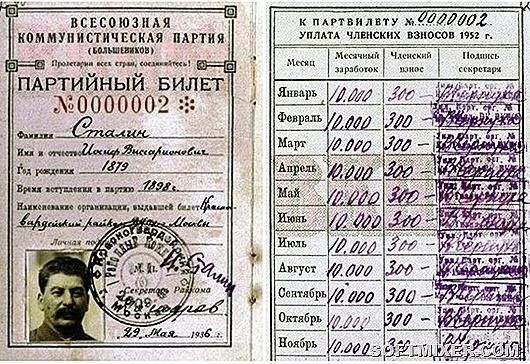 ВСЕСОЮЗНАЯ
КОММУНИСТИЧЕСКАЯ ПАРТИЯ
(БОЛЬШЕВИКОВ)
Пролетарии всех стран, соединяйтесь!
ПАРТИЙНЫЙ БИЛЕТ
№0000002
Фамилия Сталин
Имя и отчество Иосиф Виссарионович
Год рождения 1879
Время вступления в партию 1898г.
Наименование организации, выдавшей билет Красно
гвардейский
Москвы
Личная
Секретарь Райкома
29 Мая 1936 г.
К ПАРТБИЛЕТУ № 0000002
УПЛАТА ЧЛЕНСКИХ ВЗНОСОВ 1952 г.
Месяц Месячный заработок Членский взнос Подпись секретаря
Январь 10.000 300-
Февраль 10.000 300-
Март 10.000 300-
Апрель 10.000 300-
Май 10.000 300-
Июнь 10.000 300-
Июль 10.000 300-
Август 10.000 300-
Сентябрь 10.000 300-
Октябрь 10.000 300-
Ноябрь 10.000 300-
softmixer.com